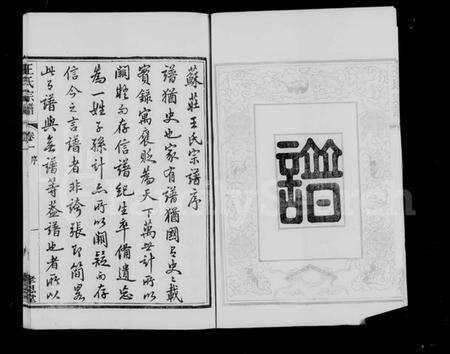 譜
蘇莊王氏宗譜序
譜猶史也家有譜猶國有史史載
實錄寓褒貶為天下萬世計所以
闕疑而存信譜紀生卒備遺忘
為一姓子孫計亦所以闕疑而存
信今之言譜者非誇張即簡畧
此有譜與無譜等蓋譜也者所以
王氏宗譜 卷一 序